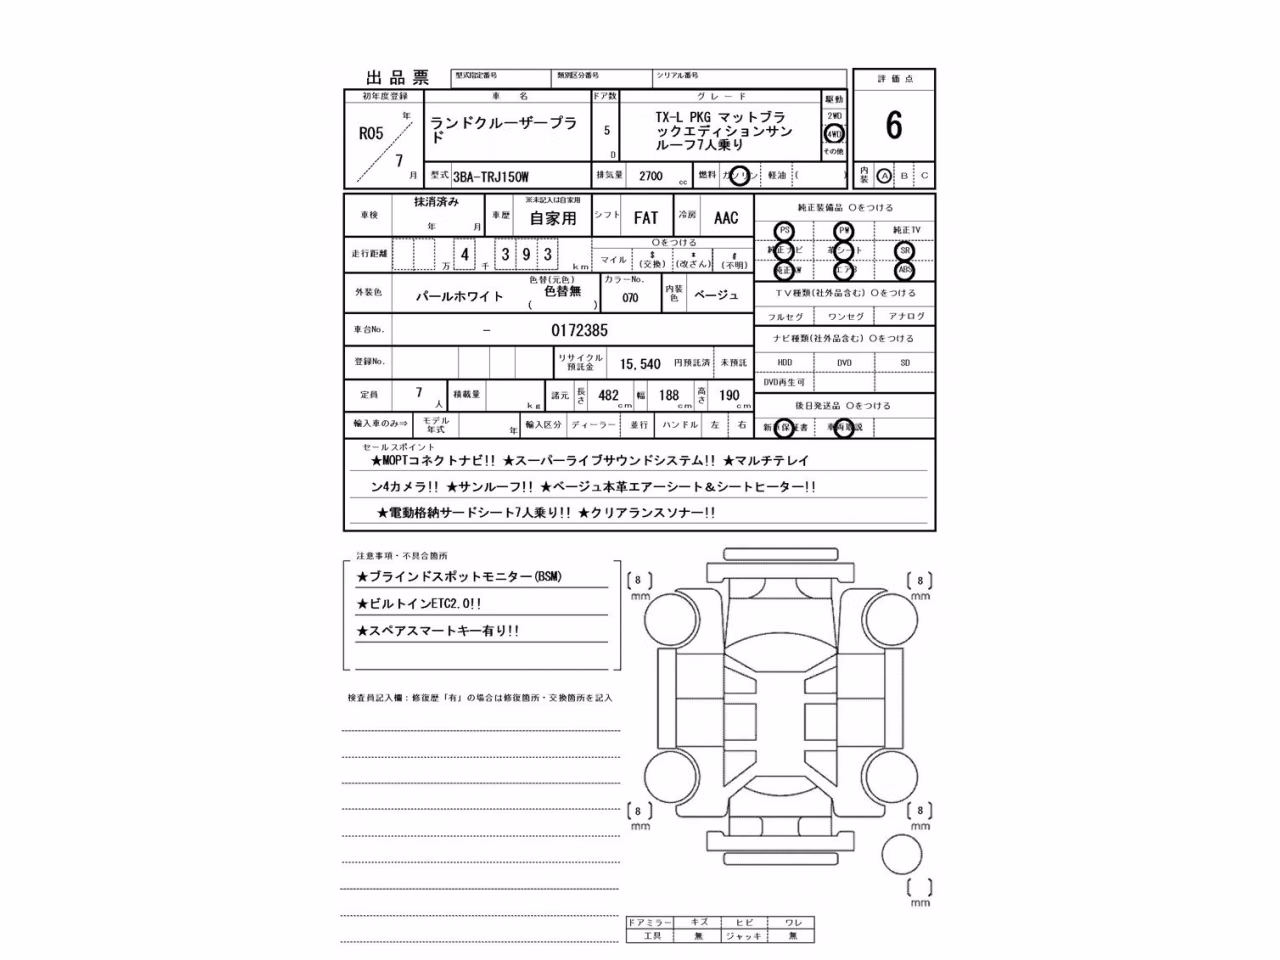 出品票
型式指定番号 類別区分番号 シリアル番号
評価点
初年度登録 車名 ドア数 グレード 駆動
R05 年 7 月
ランドクルーザープラ
ド
5 D
TX-L PKG マットブラ
ックエディションサン
ルーフ7人乗り
2WD
4WD
その他
6
型式 3BA-TRJ150W 排気量 2700 cc 燃料 ガソリン 軽油 ( )
内装 A B C
車検 抹消済み 年 月 車歴 ※未記入は自家用 自家用 シフト FAT 冷房 AAC
走行距離 万 4 千 3 9 3 km
○をつける
マイル $ (交換) * (改ざん) # (不明)
外装色 パールホワイト 色替(元色) 色替無 ( ) カラーNo. 070 内装色 ベージュ
車台No. - 0172385
登録No. リサイクル預託金 15,540 円預託済 未預託
定員 7 人 積載量 kg 諸元 長さ 482 cm 幅 188 cm 高さ 190 cm
輸入車のみ⇒ モデル年式 年 輸入区分 ディーラー 並行 ハンドル 左 右
純正装備品 ○をつける
PS PW 純正TV
純正ナビ 革シート SR
純正AW エアB ABS
TV種類(社外品含む) ○をつける
フルセグ ワンセグ アナログ
ナビ種類(社外品含む) ○をつける
HDD DVD SD
DVD再生可
後日発送品 ○をつける
新車保証書 車両取説
セールスポイント
★MOPTコネクトナビ!! ★スーパーライブサウンドシステム!! ★マルチテレイ
ン4カメラ!! ★サンルーフ!! ★ベージュ本革エアーシート&シートヒーター!!
★電動格納サードシート7人乗り!! ★クリアランスソナー!!
注意事項・不具合箇所
★ブラインドスポットモニター(BSM)
★ビルトインETC2.0!!
★スペアスマートキー有り!!
検査員記入欄:修復歴「有」の場合は修復箇所・交換箇所を記入
8 mm
8 mm
8 mm
8 mm
mm
ドアミラー キズ ヒビ ワレ
工具 無 ジャッキ 無